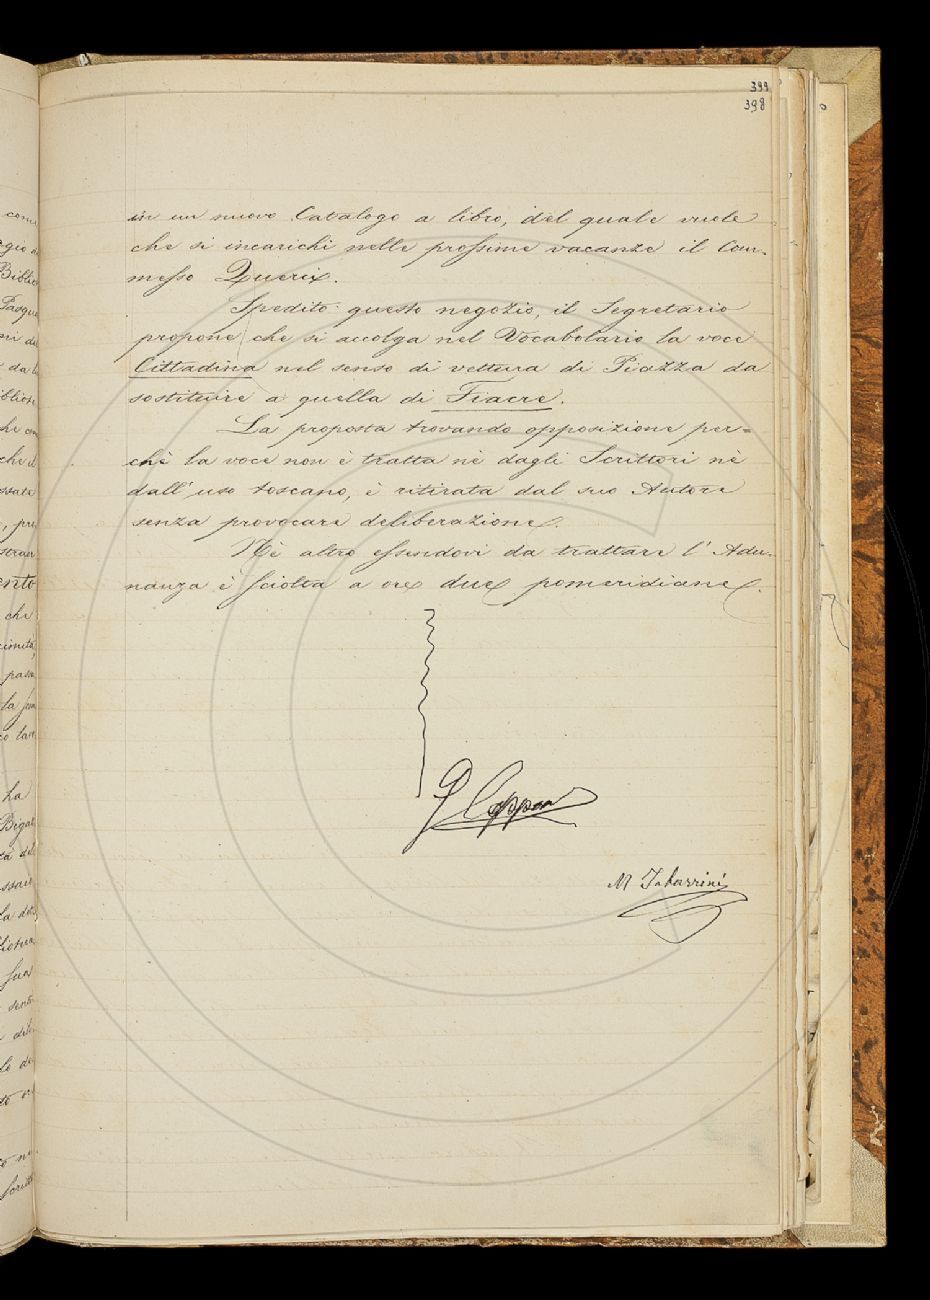 399
398
in un nuovo Catalogo a libro, del quale vuole
che si incarichi nelle prossime vacanze il Com-
messo Querix.
Spedito questo negozio, il Segretario
propone che si accolga nel Vocabolario la voce
Cittadina nel senso di vettura di Piazza da
sostituire a quella di Fiacre.
La proposta trovando opposizione per=
chè la voce non è tratta nè dagli Scrittori nè
dall' uso toscano, è ritirata dal suo Autore
senza provocare deliberazione.
Nè altro essendovi da trattare l' Adu-
nanza è sciolta a ore due pomeridiane.
M Tabarrini